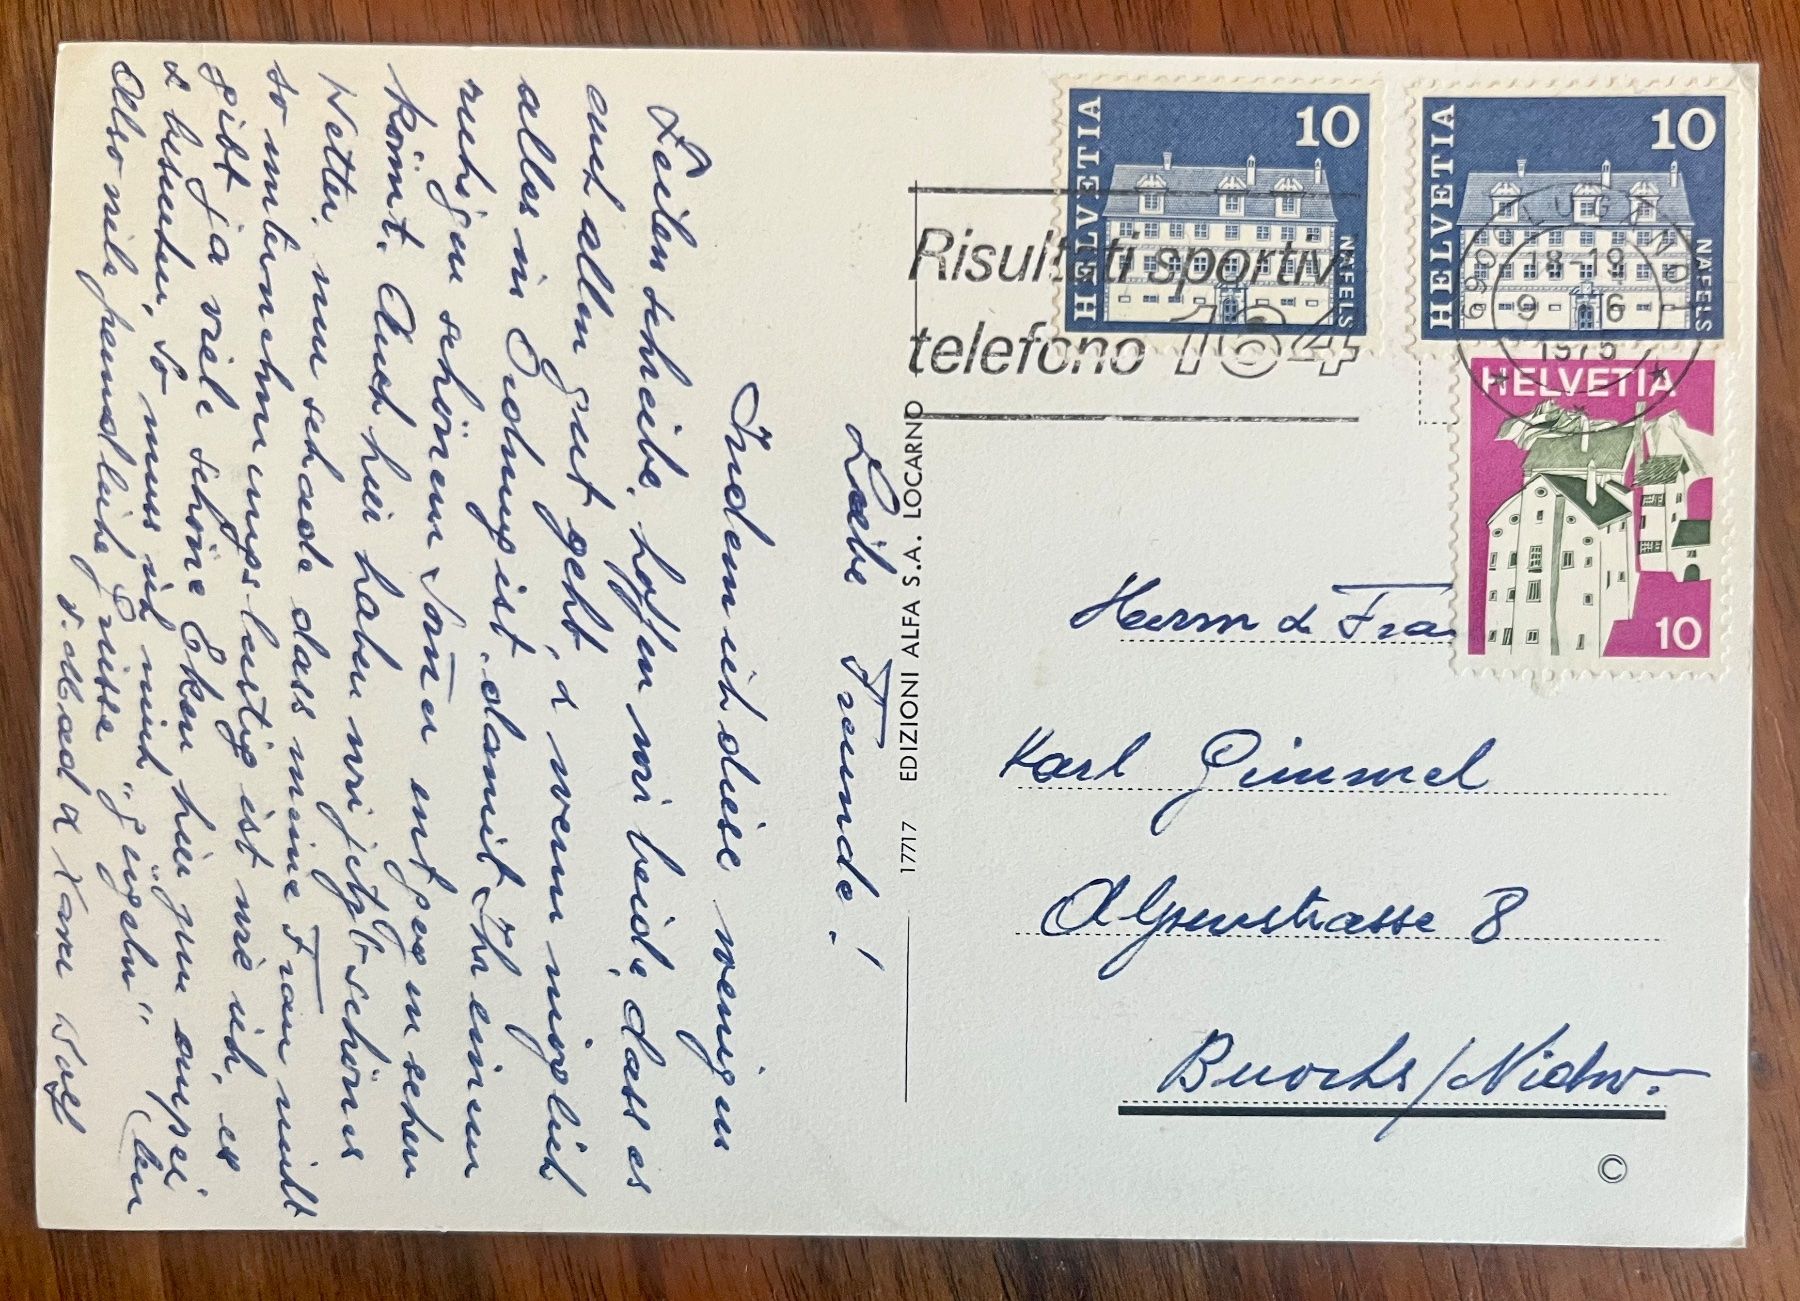 Liebe Freunde!
Indem ich diese wenigen
Zeilen schreibe, hoffen wir beide, dass es
euch allen gut geht, & wenn möglich
alles in Ordnung ist, damit Ihr einen
ruhigen schönen entgegen sehen
könnt. Auch hier haben wir jetzt schönes
Wetter, nur schade dass meine Frau nicht
so unternehmungslustig ist wie ich, es
gibt ja viele schöne Eken hier zum
& besuchen. So muss ich mich
Also viele freundliche Grüsse "gügelu"
HELVETIA 10 NÄFELS
HELVETIA 10 NÄFELS
HELVETIA 10
Risultati sportivi
telefono 164
6900 LUGANO 1
18-19
9 6
1975
17717 EDIZIONI ALFA S.A. LOCARNO
Herrn & Fra
Karl Gimmel
Alpenstrasse 8
Buochs/Nidw.
©